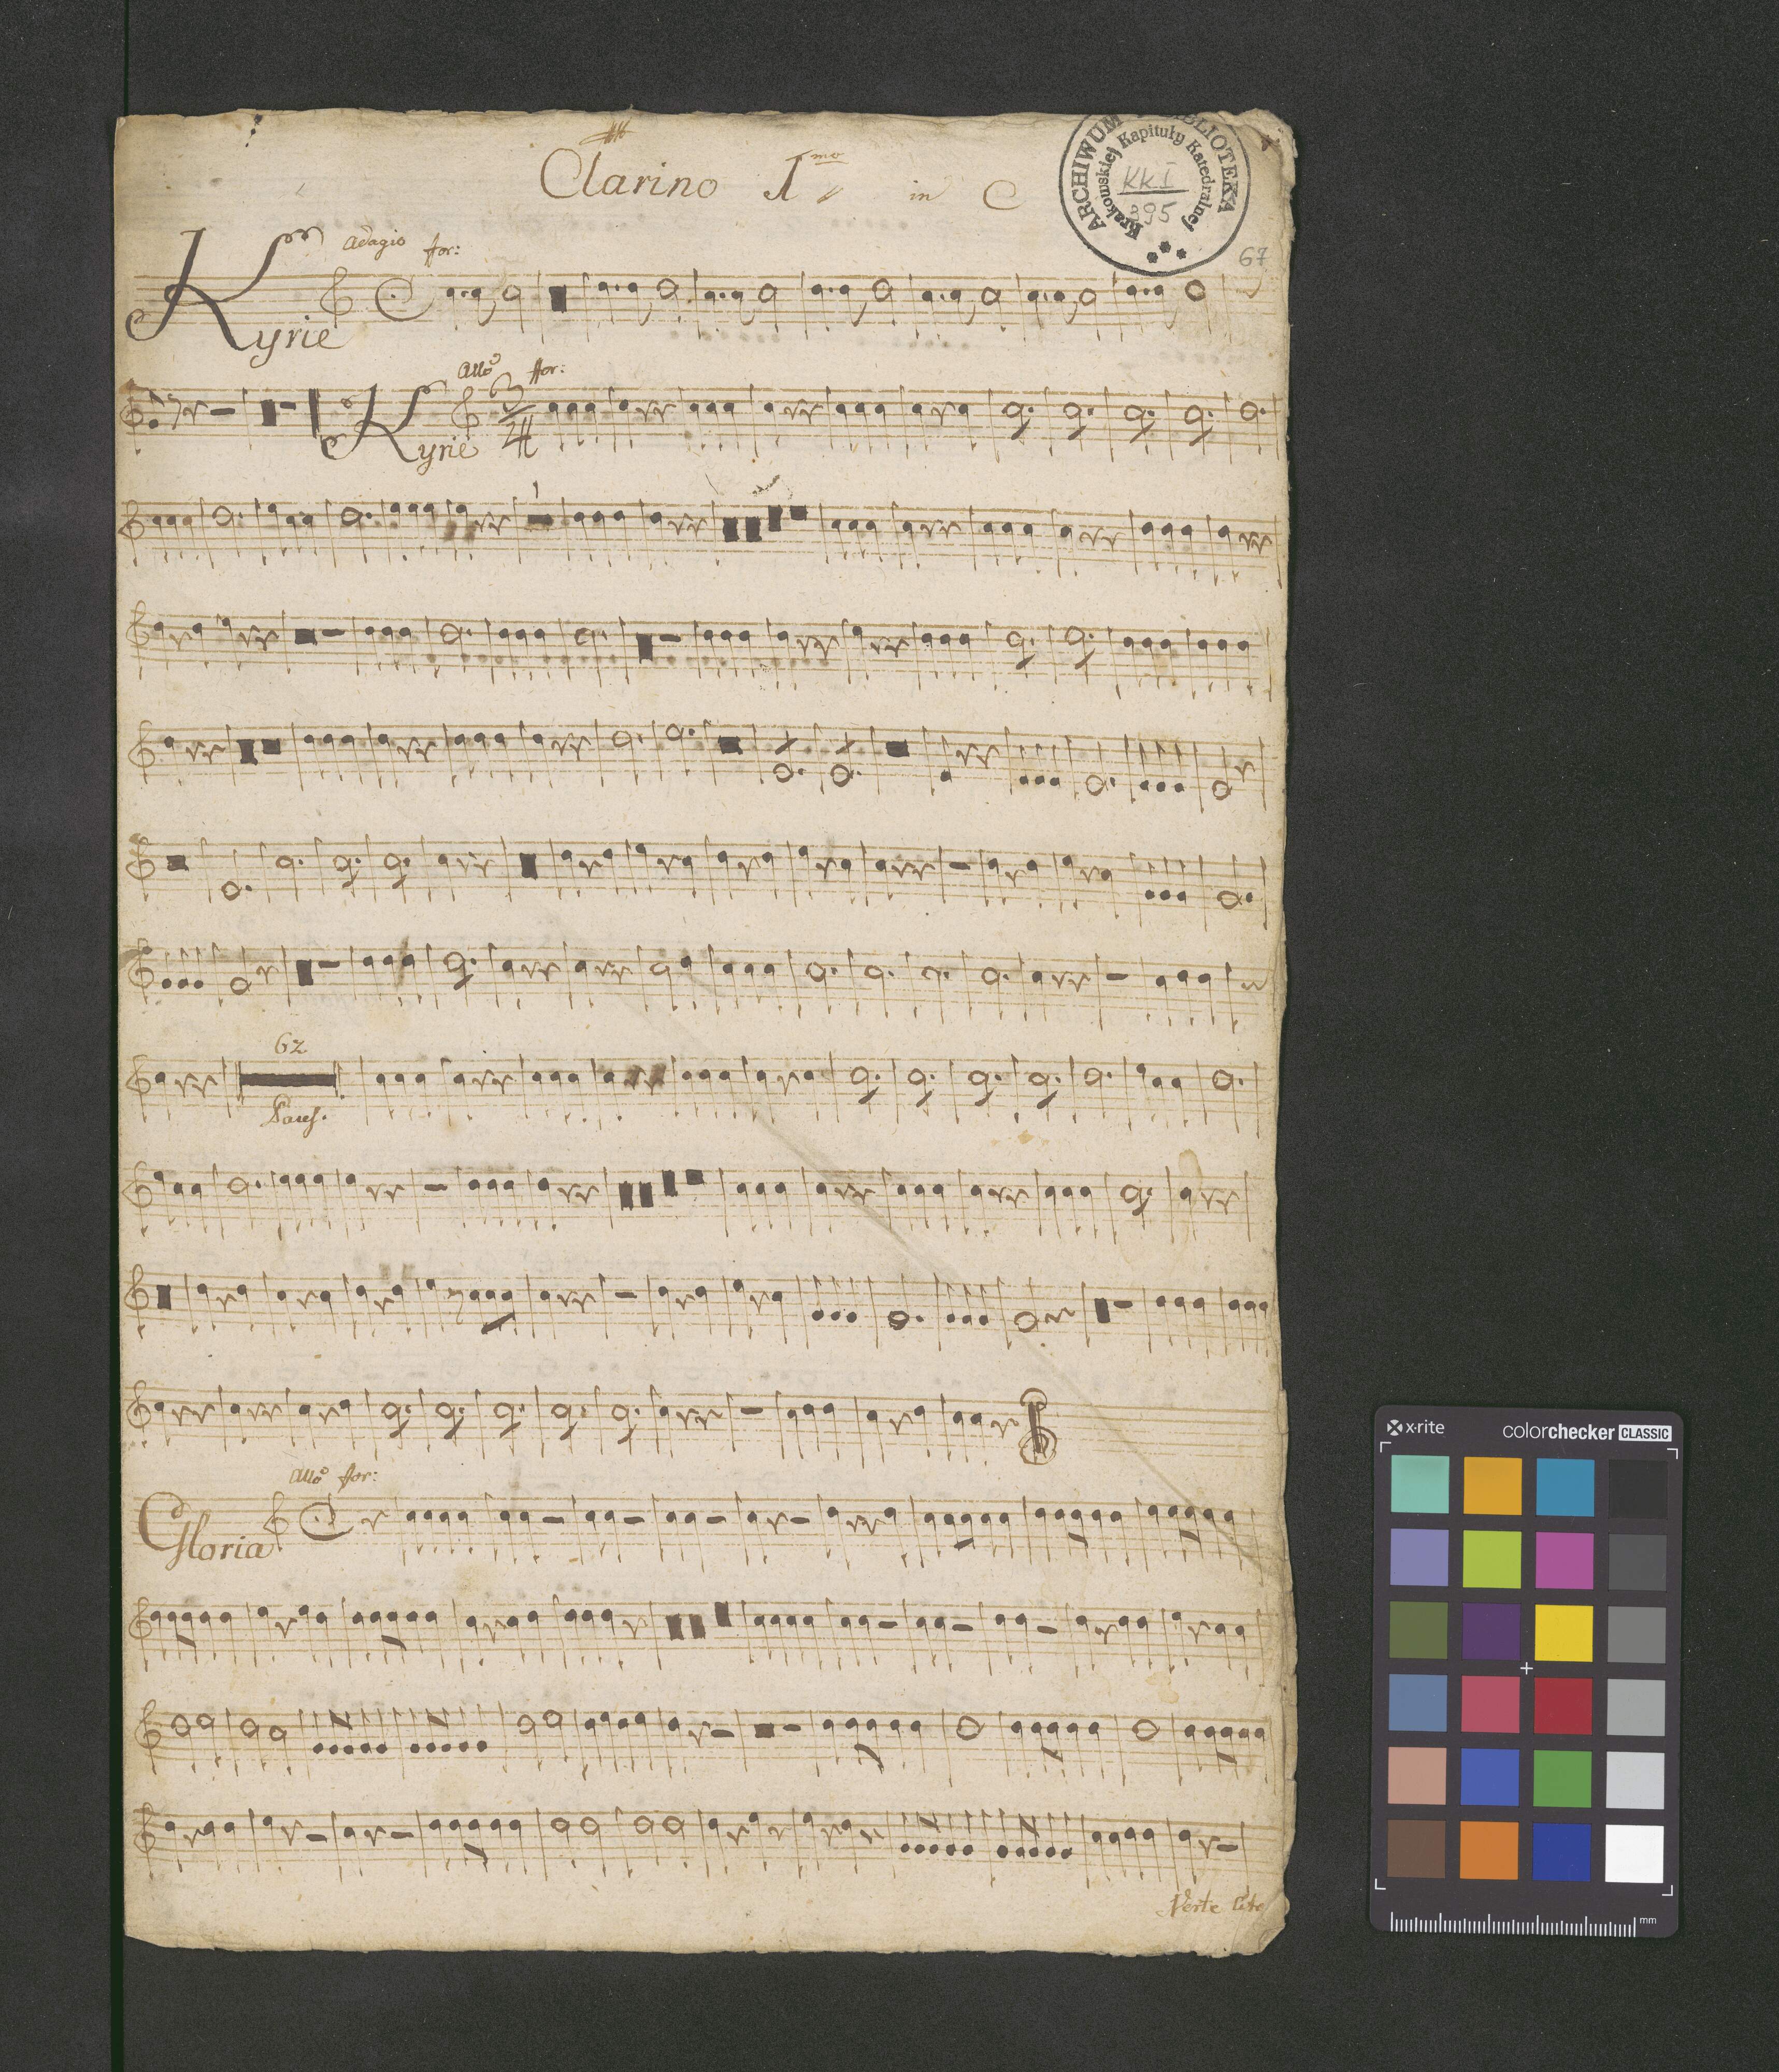 Clarino Imo in C
ARCHIWUM BIBLIOTEKA
Krakowskiej Kapituły Katedralnej
KK I
395
67
Adagio for:
Kyrie
Allo for:
Kyrie
3
4
62
Paus.
Allo for:
Gloria
Verte Cito
x-rite colorchecker CLASSIC
mm